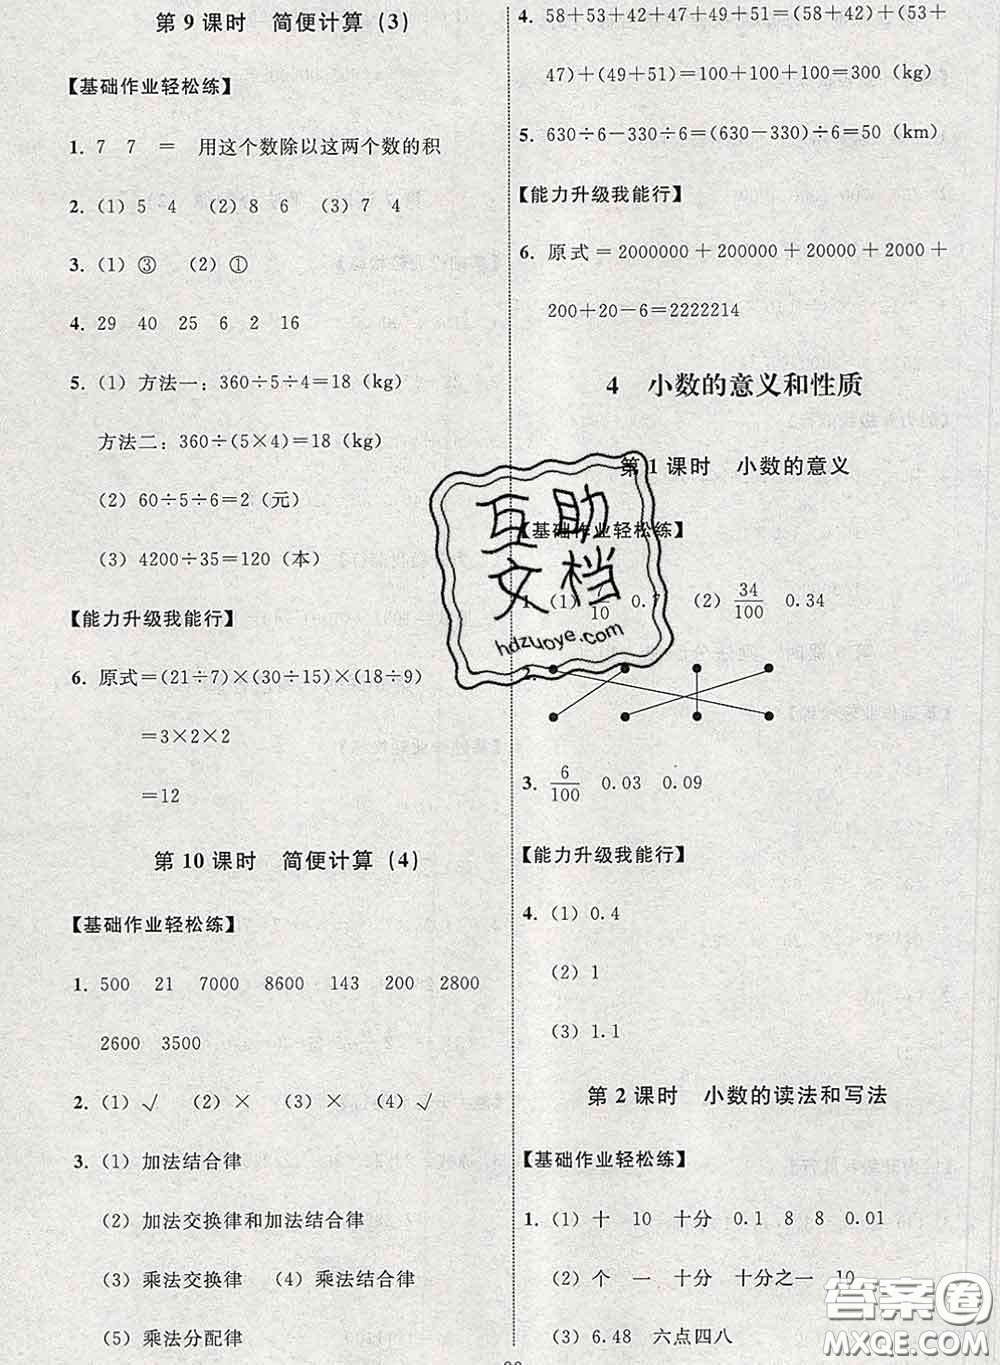 第 9 课时　简便计算（3）
【基础作业轻松练】
1. 7　7　＝　用这个数除以这两个数的积
2.（1）5　4　（2）8　6　（3）7　4
3.（1）③　（2）①
4. 29　40　25　6　2　16
5.（1）方法一：360÷5÷4＝18（kg）
方法二：360÷(5×4)＝18（kg）
（2）60÷5÷6＝2（元）
（3）4200÷35＝120（本）
【能力升级我能行】
6. 原式＝(21÷7)×(30÷15)×(18÷9)
＝3×2×2
＝12
第 10 课时　简便计算（4）
【基础作业轻松练】
1. 500　21　7000　8600　143　200　2800
2600　3500
2.（1）√　（2）×　（3）×　（4）√
3.（1）加法结合律
（2）加法交换律和加法结合律
（3）乘法交换律　（4）乘法结合律
（5）乘法分配律
4. 58＋53＋42＋47＋49＋51＝(58＋42)＋(53＋
47)＋(49＋51)＝100＋100＋100＝300（kg）
5. 630÷6－330÷6＝(630－330)÷6＝50（km）
【能力升级我能行】
6. 原式＝2000000＋200000＋20000＋2000＋
200＋20－6＝2222214
4　小数的意义和性质
第 1 课时　小数的意义
【基础作业轻松练】
1.（1） /10　0.7　（2）34/100　0.34
2.
3. 6/100　0.03　0.09
【能力升级我能行】
4.（1）0.4
（2）1
（3）1.1
第 2 课时　小数的读法和写法
【基础作业轻松练】
1.（1）十　10　十分　0.1　8　8　0.01
（2）个　一　十分　十分之一　10
（3）6.48　六点四八
互助
文档
hdzuoye.com
答案圈
MXQE.COM